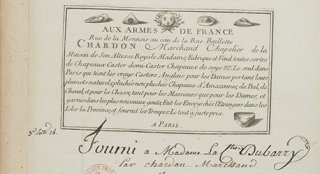 AUX ARMES DE FRANCE
Rue de la Monnoie au coin de la Rue Baillette
CHARDON Marchand Chapelier de la
Maison de Son Altesse Royale Madame, Fabrique et Vend toutes sortes
de Chapeaux Castor demi Castor Chapeaux de soye &c. Le seul dans
Paris qui tient les vrays Castors Anglais pour les Dames portant leurs
plumes naturel pluché et non pluché Chapeaux d'Amazonnes, de Bal, de
Cheval, et pour la Chasse, tant pour les Messieurs que pour les Dames, et
garnis dans les plus nouveaux gouts, Fait les Envoys chés l'Etranger dans les
Isles la Province, et fournit les Troupes. Le tout a juste prix.
A PARIS
Fourni a Madame la Ctsse Dubarry
Par chardon Marchand